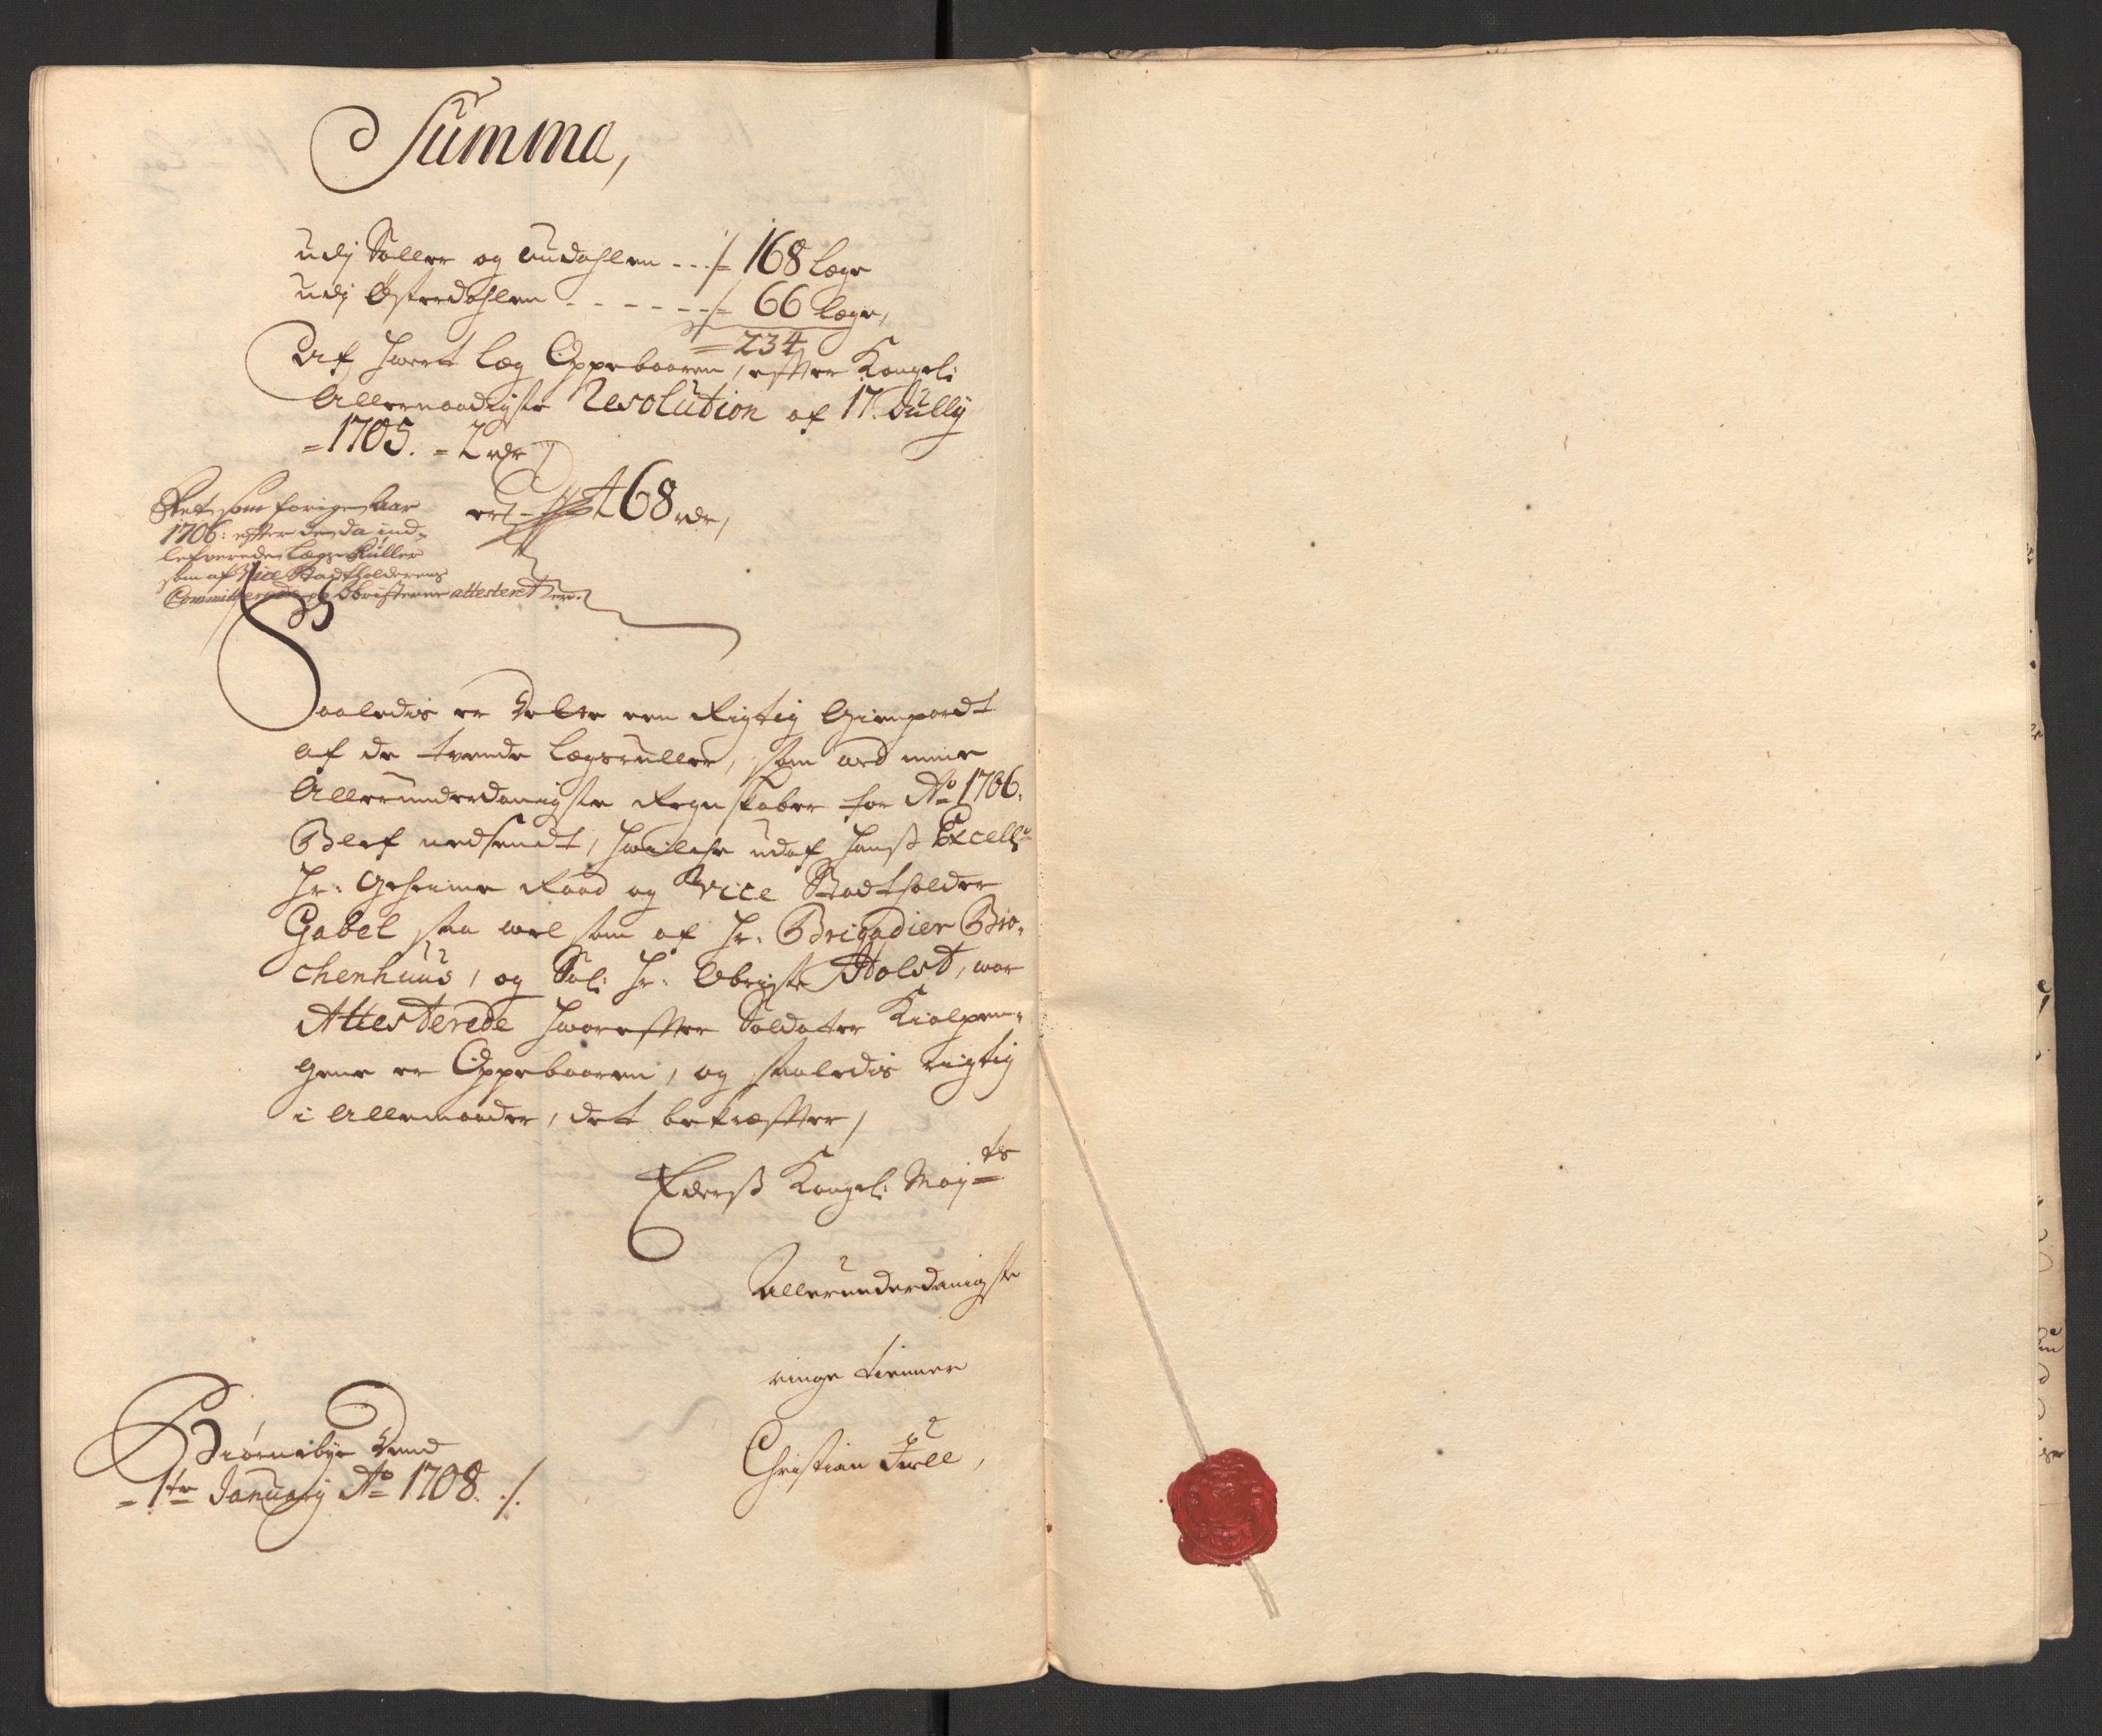 Summa,
udj Soller og Oudahlen - - ./. 168 læge
udj Østerdahlen - - - - - ./. 66 læge,
= 234
Af hvert læg Oppebaaren, efter Kongel:
Allernaadigste Resolution af 17. Jully
= 1705. = 2 rdr
er - 468 rdr,
Ret, som forige Aar
1706: efter de da ind-
lefverede Lægs Ruller
som af Vice Stadtholderens
Committerede og Obristerne attesteret er.
Saaledis er Dette een Rigtig Gienpardt
af de tvende Lægsruller, som ved mine
Allerunderdanigste Regnskaber for Ao 1706.
Blef nedsendt, hvilche udaf Hanß Excell:
Hr: Geheime Raad og Vice Stadtholder
Gabel saa vel som af Hr: Brigadier Bro-
chenhuus, og Sal: Hr: Obriste Holst, var
Attesterede hvorefter Soldater Kiolpen-
gene er Oppebaaren, og saaledis rigtig
i Allemaader, det bekræfter,
Ederß Kongel: May:ts
Allerunderdanigste
ringe tienner
Christian Juell,
Biørnebye Dend
= 1te January Ao 1708. ./.